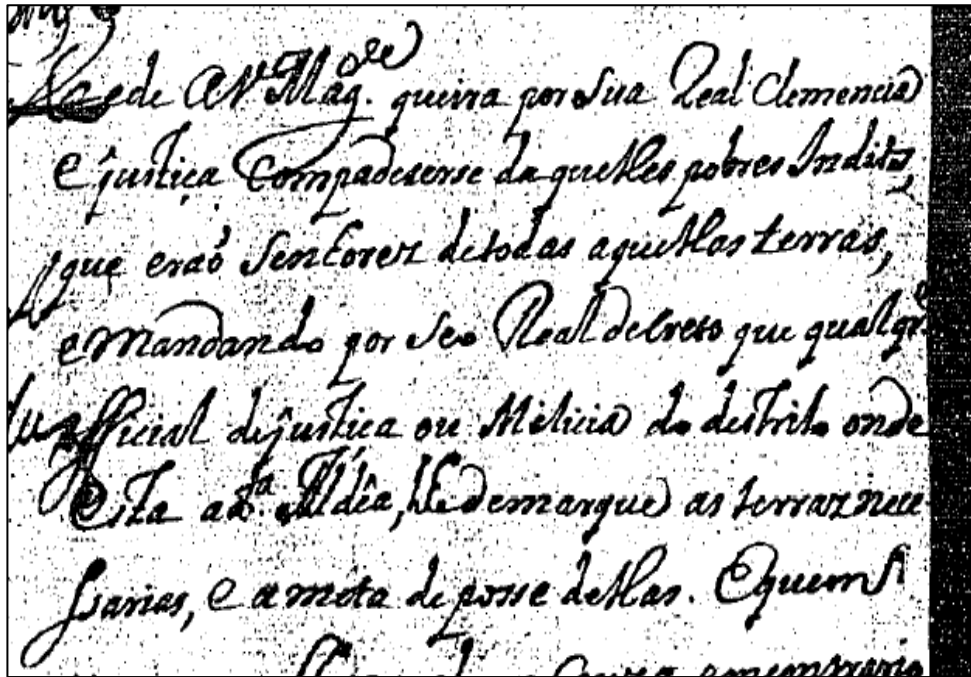 Pede A V. Mag.de queira por Sua Real Clemencia
e justiça Compadeserse daquelles pobres Indios,
que eraõ Senhorez detodas aquellas terras,
e Mandando por Seo Real decreto que qualqr.
official dejustiça ou Milicia do destrito onde
Esta ad.a Aldêa, lhe demarque as terraz nece
ssarias, e a meta de posse dellas. Equem